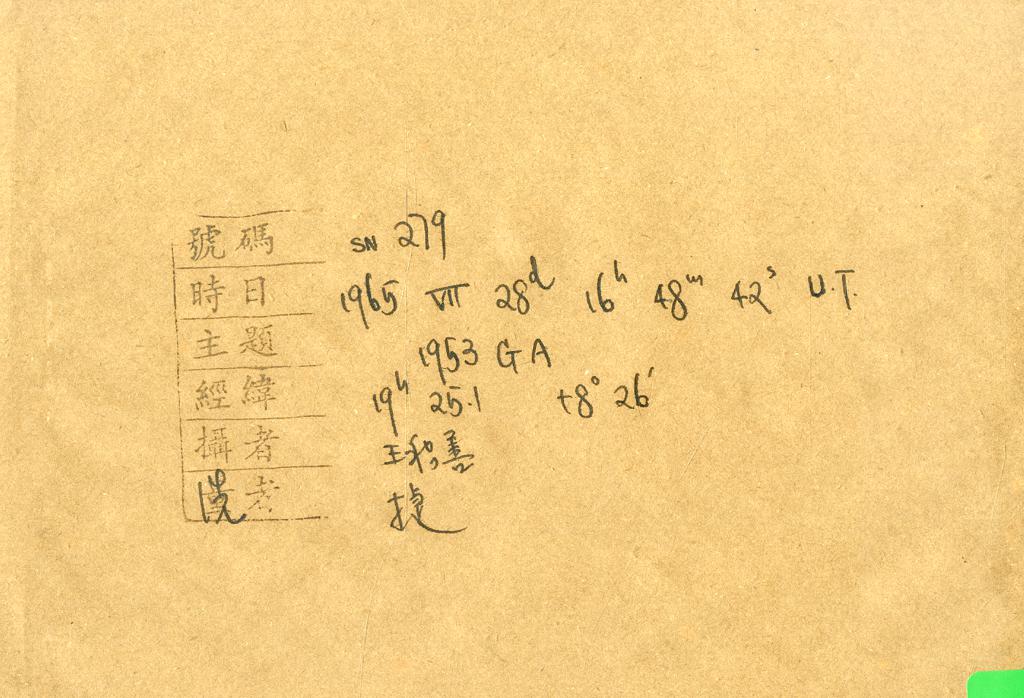 號碼 SN 279
時日 1965 VII 28ᵈ 16ʰ 48ᵐ 42ˢ U.T.
主題 1953 GA
經緯 19ʰ 25.1 +8° 26′
攝者 王和善
洗者 捷